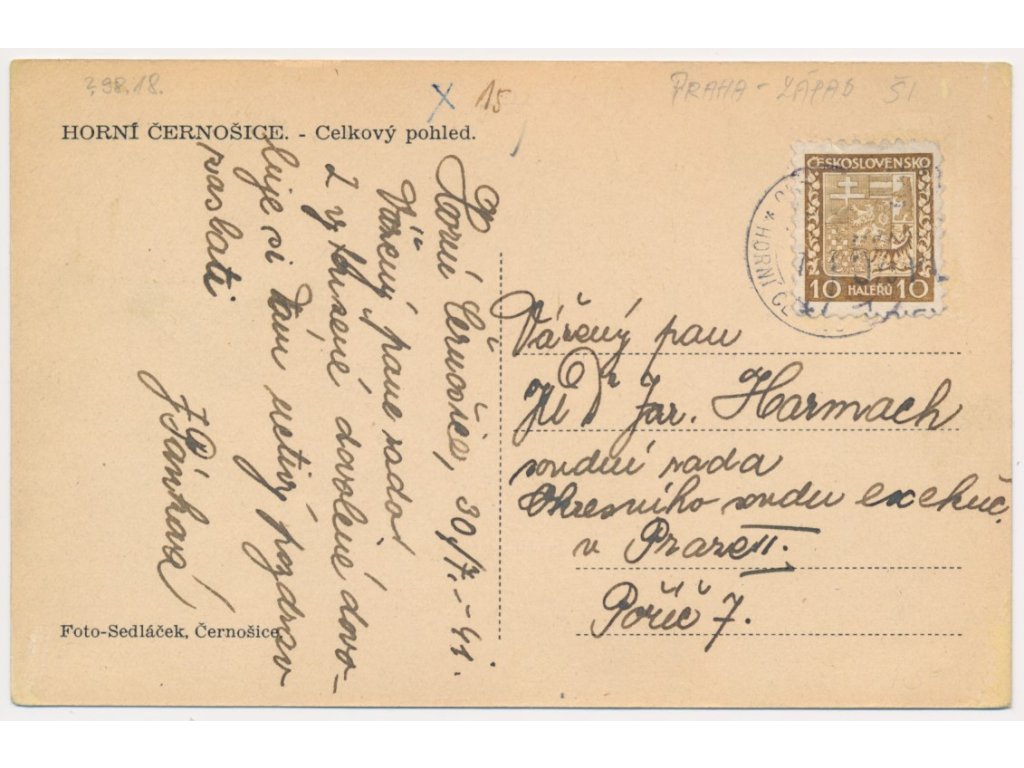 398.18.
X 15
PRAHA - ZÁPAD ŠI
HORNÍ ČERNOŠICE. - Celkový pohled.
Horní Černošice, 30/7.-41.
Vážený pane rado!
Z výtmené dovolené dovo-
luje si Vám uctivý pozdrav
zaslati
J Pánková
ČESKOSLOVENSKO
10 HALÉŘŮ 10
* HORNÍ ČE
Vážený pan
JUDr Jar. Harmach
soudní rada
Okresního soudu exekuč.
v Praze II.
Poříč 7.
Foto-Sedláček, Černošice